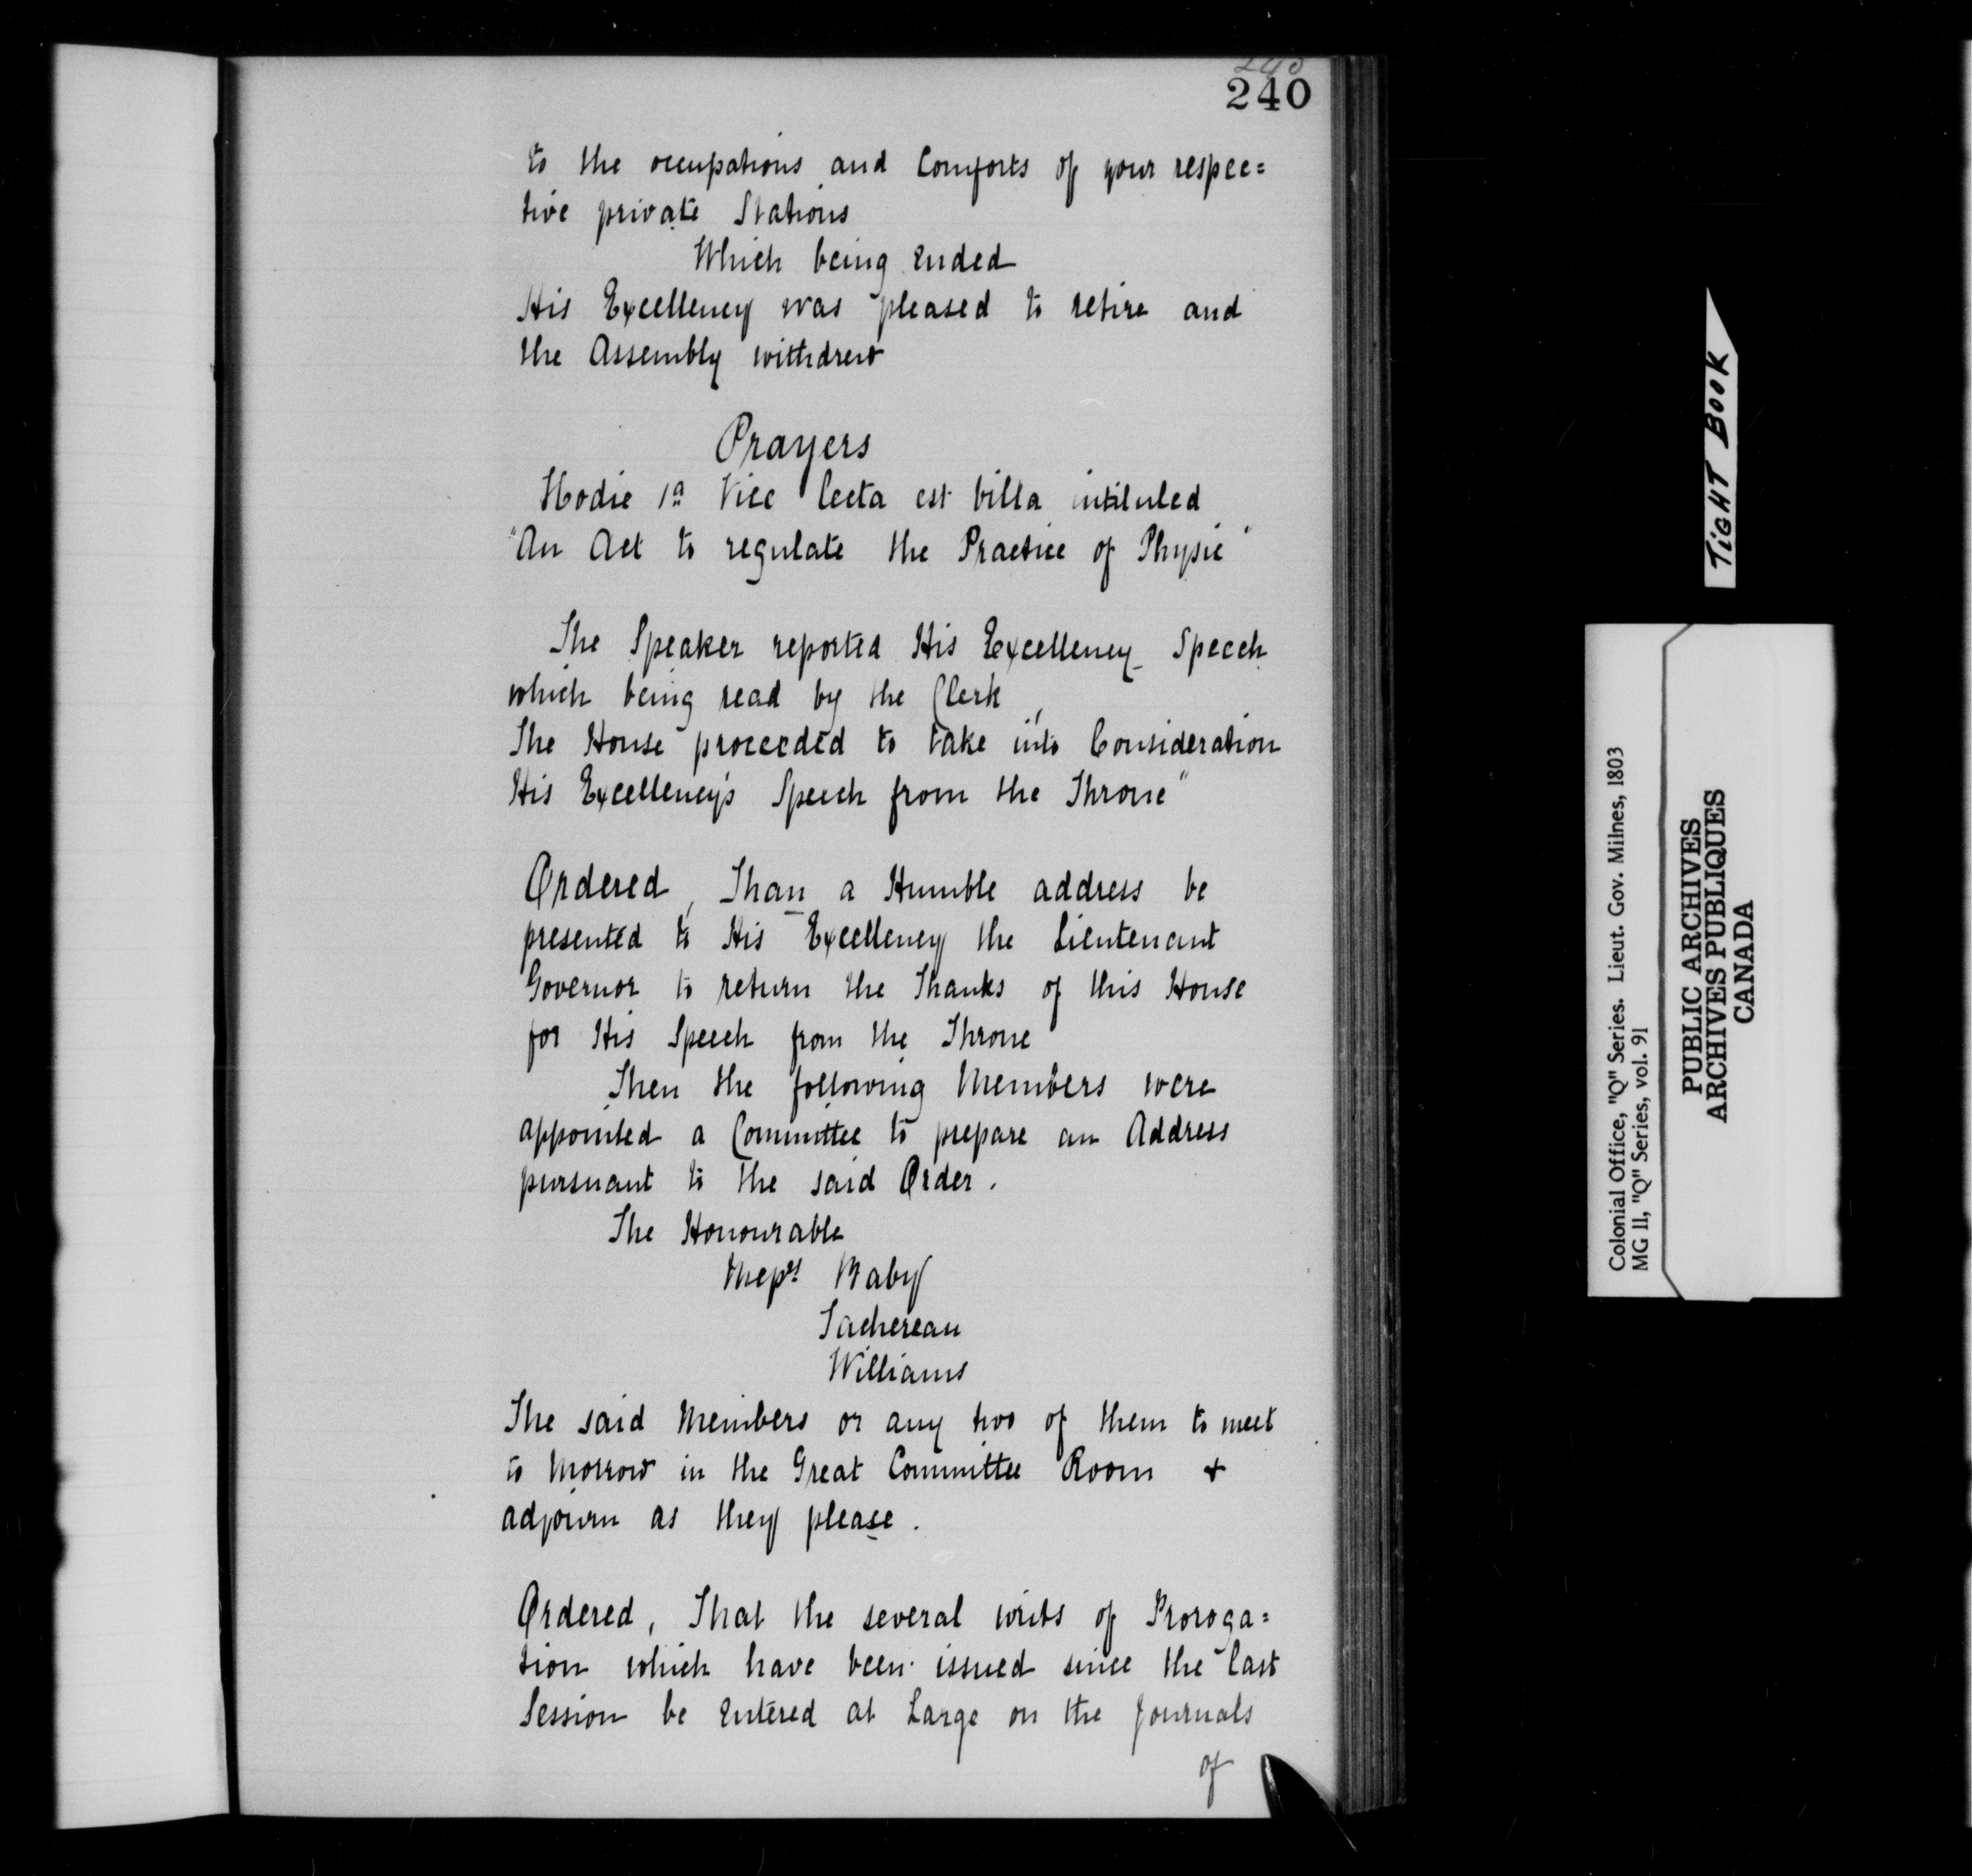 240
240
to the occupations and Comforts of your respec=
tive private Stations
Which being ended
His Excellency was pleased to retire and
the Assembly withdrew
Prayers
Hodie 1a Vice lecta est billa intituled
"An Act to regulate the Practice of Physic"
The Speaker reported His Excellency Speech
which being read by the Clerk,
The House proceeded to take into Consideration
His Excellency's Speech from the Throne"
Ordered, Than a Humble address be
presented to His Excellency the Lieutenant
Governor to return the Thanks of this House
for His Speech from the Throne
Then the following Members were
appointed a Committee to prepare an Address
pursuant to the said Order.
The Honourable
Messrs Baby
Tachereau
Williams
The said Members or any two of them to meet
to Morrow in the Great Committee Room +
adjourn as they please.
Ordered, That the several writs of Proroga=
tion which have been issued since the last
Session be entered at Large on the Journals
of
TIGHT BOOK
Colonial Office, "Q" Series. Lieut. Gov. Milnes, 1803
MG 11, "Q" Series, vol. 91
PUBLIC ARCHIVES
ARCHIVES PUBLIQUES
CANADA